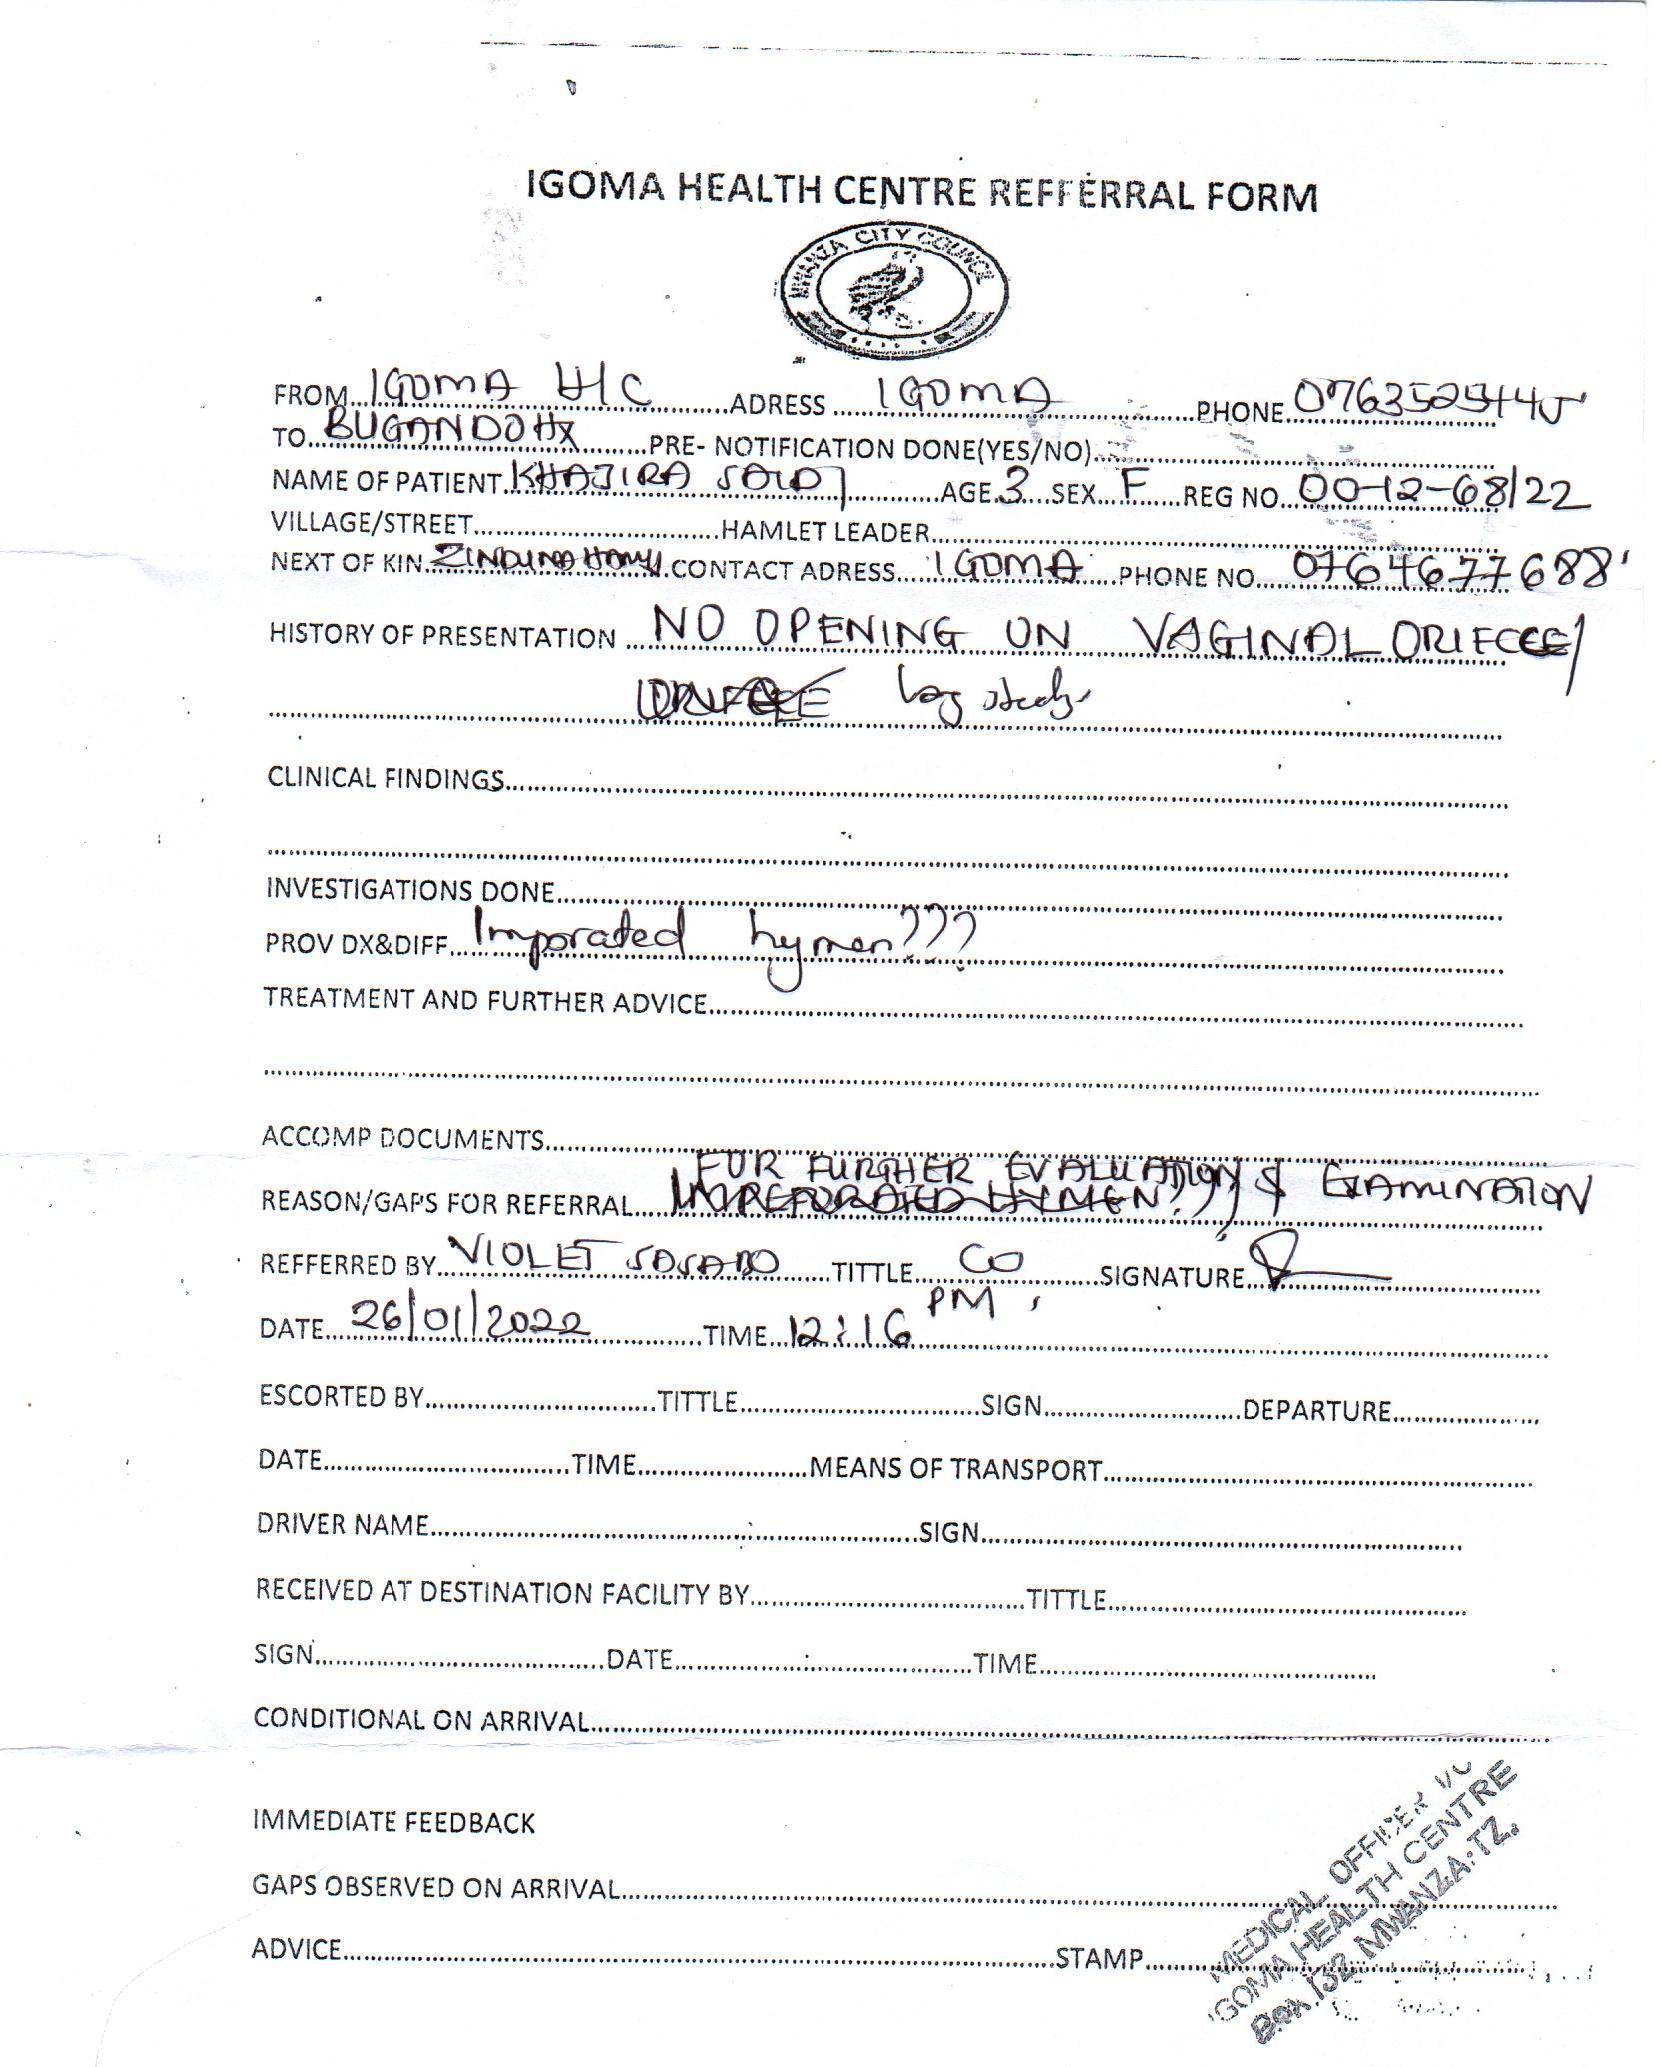 IGOMA HEALTH CENTRE REFFERRAL FORM
MWANZA CITY COUNCIL
FROM...IGOMA H/C...ADRESS...IGOMA...PHONE...
TO...BUGANDO HX...PRE- NOTIFICATION DONE(YES/NO)...
NAME OF PATIENT...KHAJIRA SAID...AGE...3...SEX...F...REG NO...00-12-68/22
VILLAGE/STREET...HAMLET LEADER...
NEXT OF KIN...CONTACT ADRESS...IGOMA...PHONE NO...0764677688
HISTORY OF PRESENTATION...NO OPENING ON VAGINAL ORIFCEE/
CLINICAL FINDINGS...
INVESTIGATIONS DONE...
PROV DX&DIFF...Imporated hymen???
TREATMENT AND FURTHER ADVICE...
ACCOMP DOCUMENTS...
FOR FURTHER EVALUATION & EXAMINATION
REASON/GAPS FOR REFERRAL...IMPERFORATED HYMEN??
REFFERRED BY...VIOLET...TITTLE...CO...SIGNATURE...
DATE...26/01/2022...TIME...12:16 PM
ESCORTED BY...TITTLE...SIGN...DEPARTURE...
DATE...TIME...MEANS OF TRANSPORT...
DRIVER NAME...SIGN...
RECEIVED AT DESTINATION FACILITY BY...TITTLE...
SIGN...DATE...TIME...
CONDITIONAL ON ARRIVAL...
IMMEDIATE FEEDBACK
GAPS OBSERVED ON ARRIVAL...
ADVICE...STAMP...
MEDICAL OFFICER I/C
IGOMA HEALTH CENTRE
BOX 132 MWANZA-TZ.